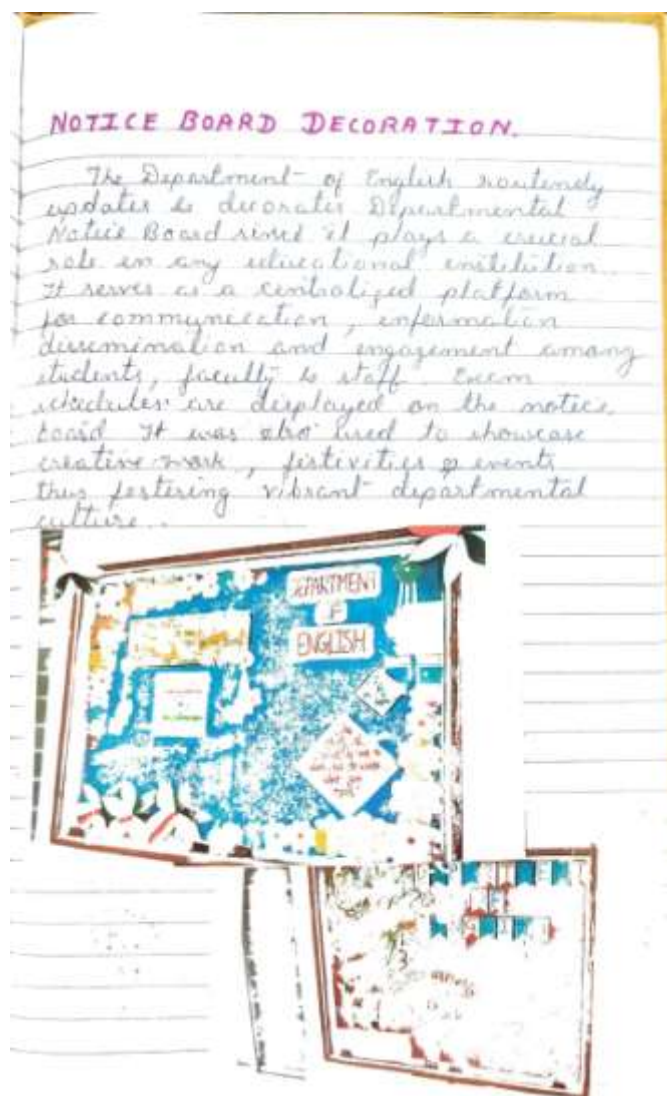 NOTICE BOARD DECORATION.
The Department of English routinely
updates & decorates Departmental
Notice Board since it plays a crucial
role in any educational institution.
It serves as a centralized platform
for communication, information
dissemination and engagement among
students, faculty & staff. Exam
schedules are displayed on the notice
board It was also used to showcase
creative work, festivities & events
thus fostering vibrant departmental
culture..
DEPARTMENT
OF
ENGLISH